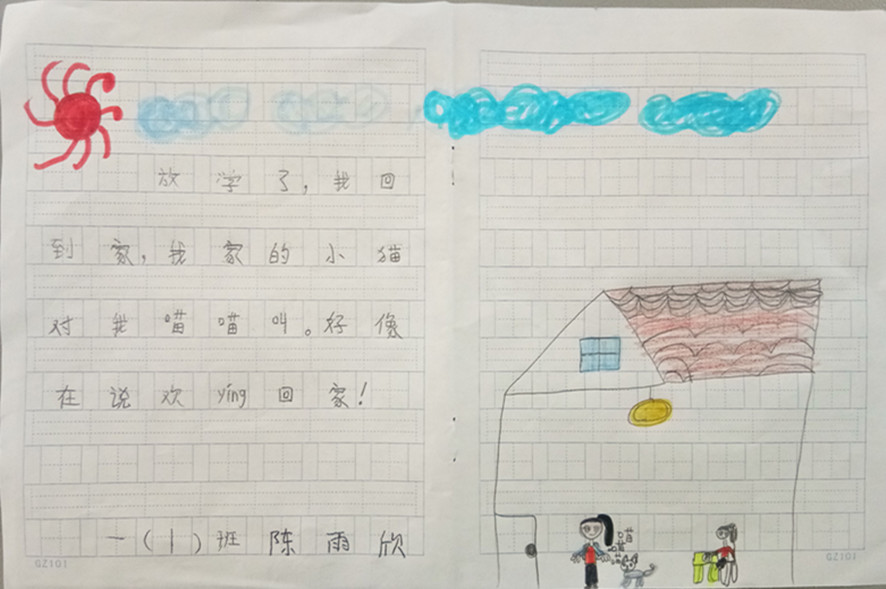 放学了，我回
到家，我家的小猫
对我喵喵叫。好像
在说欢yíng回家！
一(1)班陈雨欣
GZ101
喵
喵
GZ101